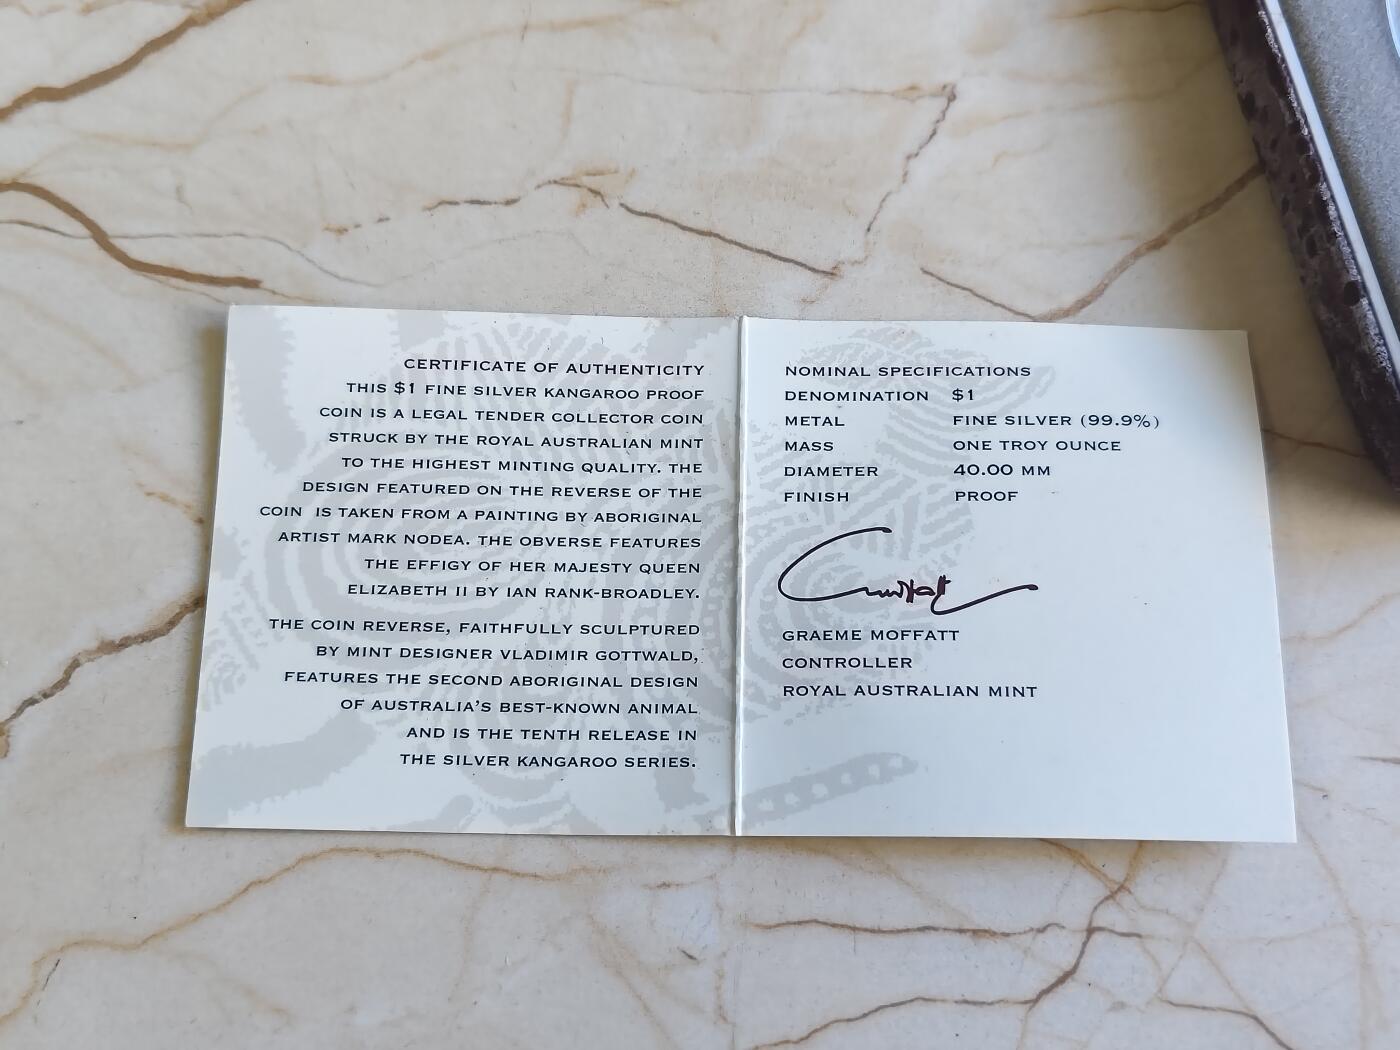 CERTIFICATE OF AUTHENTICITY
THIS $1 FINE SILVER KANGAROO PROOF
COIN IS A LEGAL TENDER COLLECTOR COIN
STRUCK BY THE ROYAL AUSTRALIAN MINT
TO THE HIGHEST MINTING QUALITY. THE
DESIGN FEATURED ON THE REVERSE OF THE
COIN IS TAKEN FROM A PAINTING BY ABORIGINAL
ARTIST MARK NODEA. THE OBVERSE FEATURES
THE EFFIGY OF HER MAJESTY QUEEN
ELIZABETH II BY IAN RANK-BROADLEY.
THE COIN REVERSE, FAITHFULLY SCULPTURED
BY MINT DESIGNER VLADIMIR GOTTWALD,
FEATURES THE SECOND ABORIGINAL DESIGN
OF AUSTRALIA'S BEST-KNOWN ANIMAL
AND IS THE TENTH RELEASE IN
THE SILVER KANGAROO SERIES.
NOMINAL SPECIFICATIONS
DENOMINATION $1
METAL FINE SILVER (99.9%)
MASS ONE TROY OUNCE
DIAMETER 40.00 MM
FINISH PROOF
GRAEME MOFFATT
CONTROLLER
ROYAL AUSTRALIAN MINT